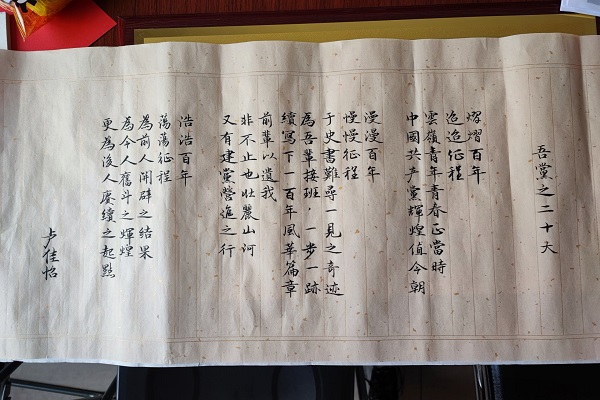 吾黨之二十大
熠熠百年
迢迢征程
雲嶺青年青春正當時
中國共产黨輝煌值今朝
漫漫百年
慢慢征程
于史書難尋一見之奇迹
為吾輩接班，一步一跡
續寫下一百年風華篇章
前輩以遺我
非不止也壯麗山河
又有建黨營造之行
浩浩百年
蕩蕩征程
為前人開辟之結果
為今人奮斗之輝煌
更為後人賡續之起點
卢佳怡